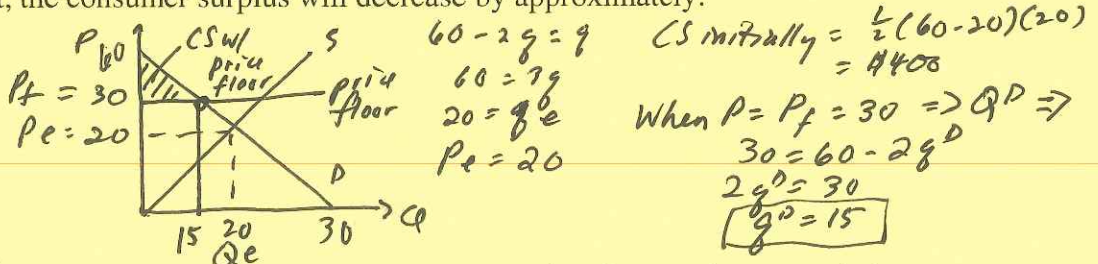 t, the consumer surplus will decrease by approximately:
P
60
CS w/
price
floor
S
Pf = 30
price
floor
Pe = 20
D
15
20
30
Q
Qe
60 - 2q = q
60 = 3q
20 = qe
Pe = 20
CS initially = ½(60-20)(20)
= $400
When P = Pf = 30 => Q^D =>
30 = 60 - 2q^D
2q^D = 30
q^D = 15